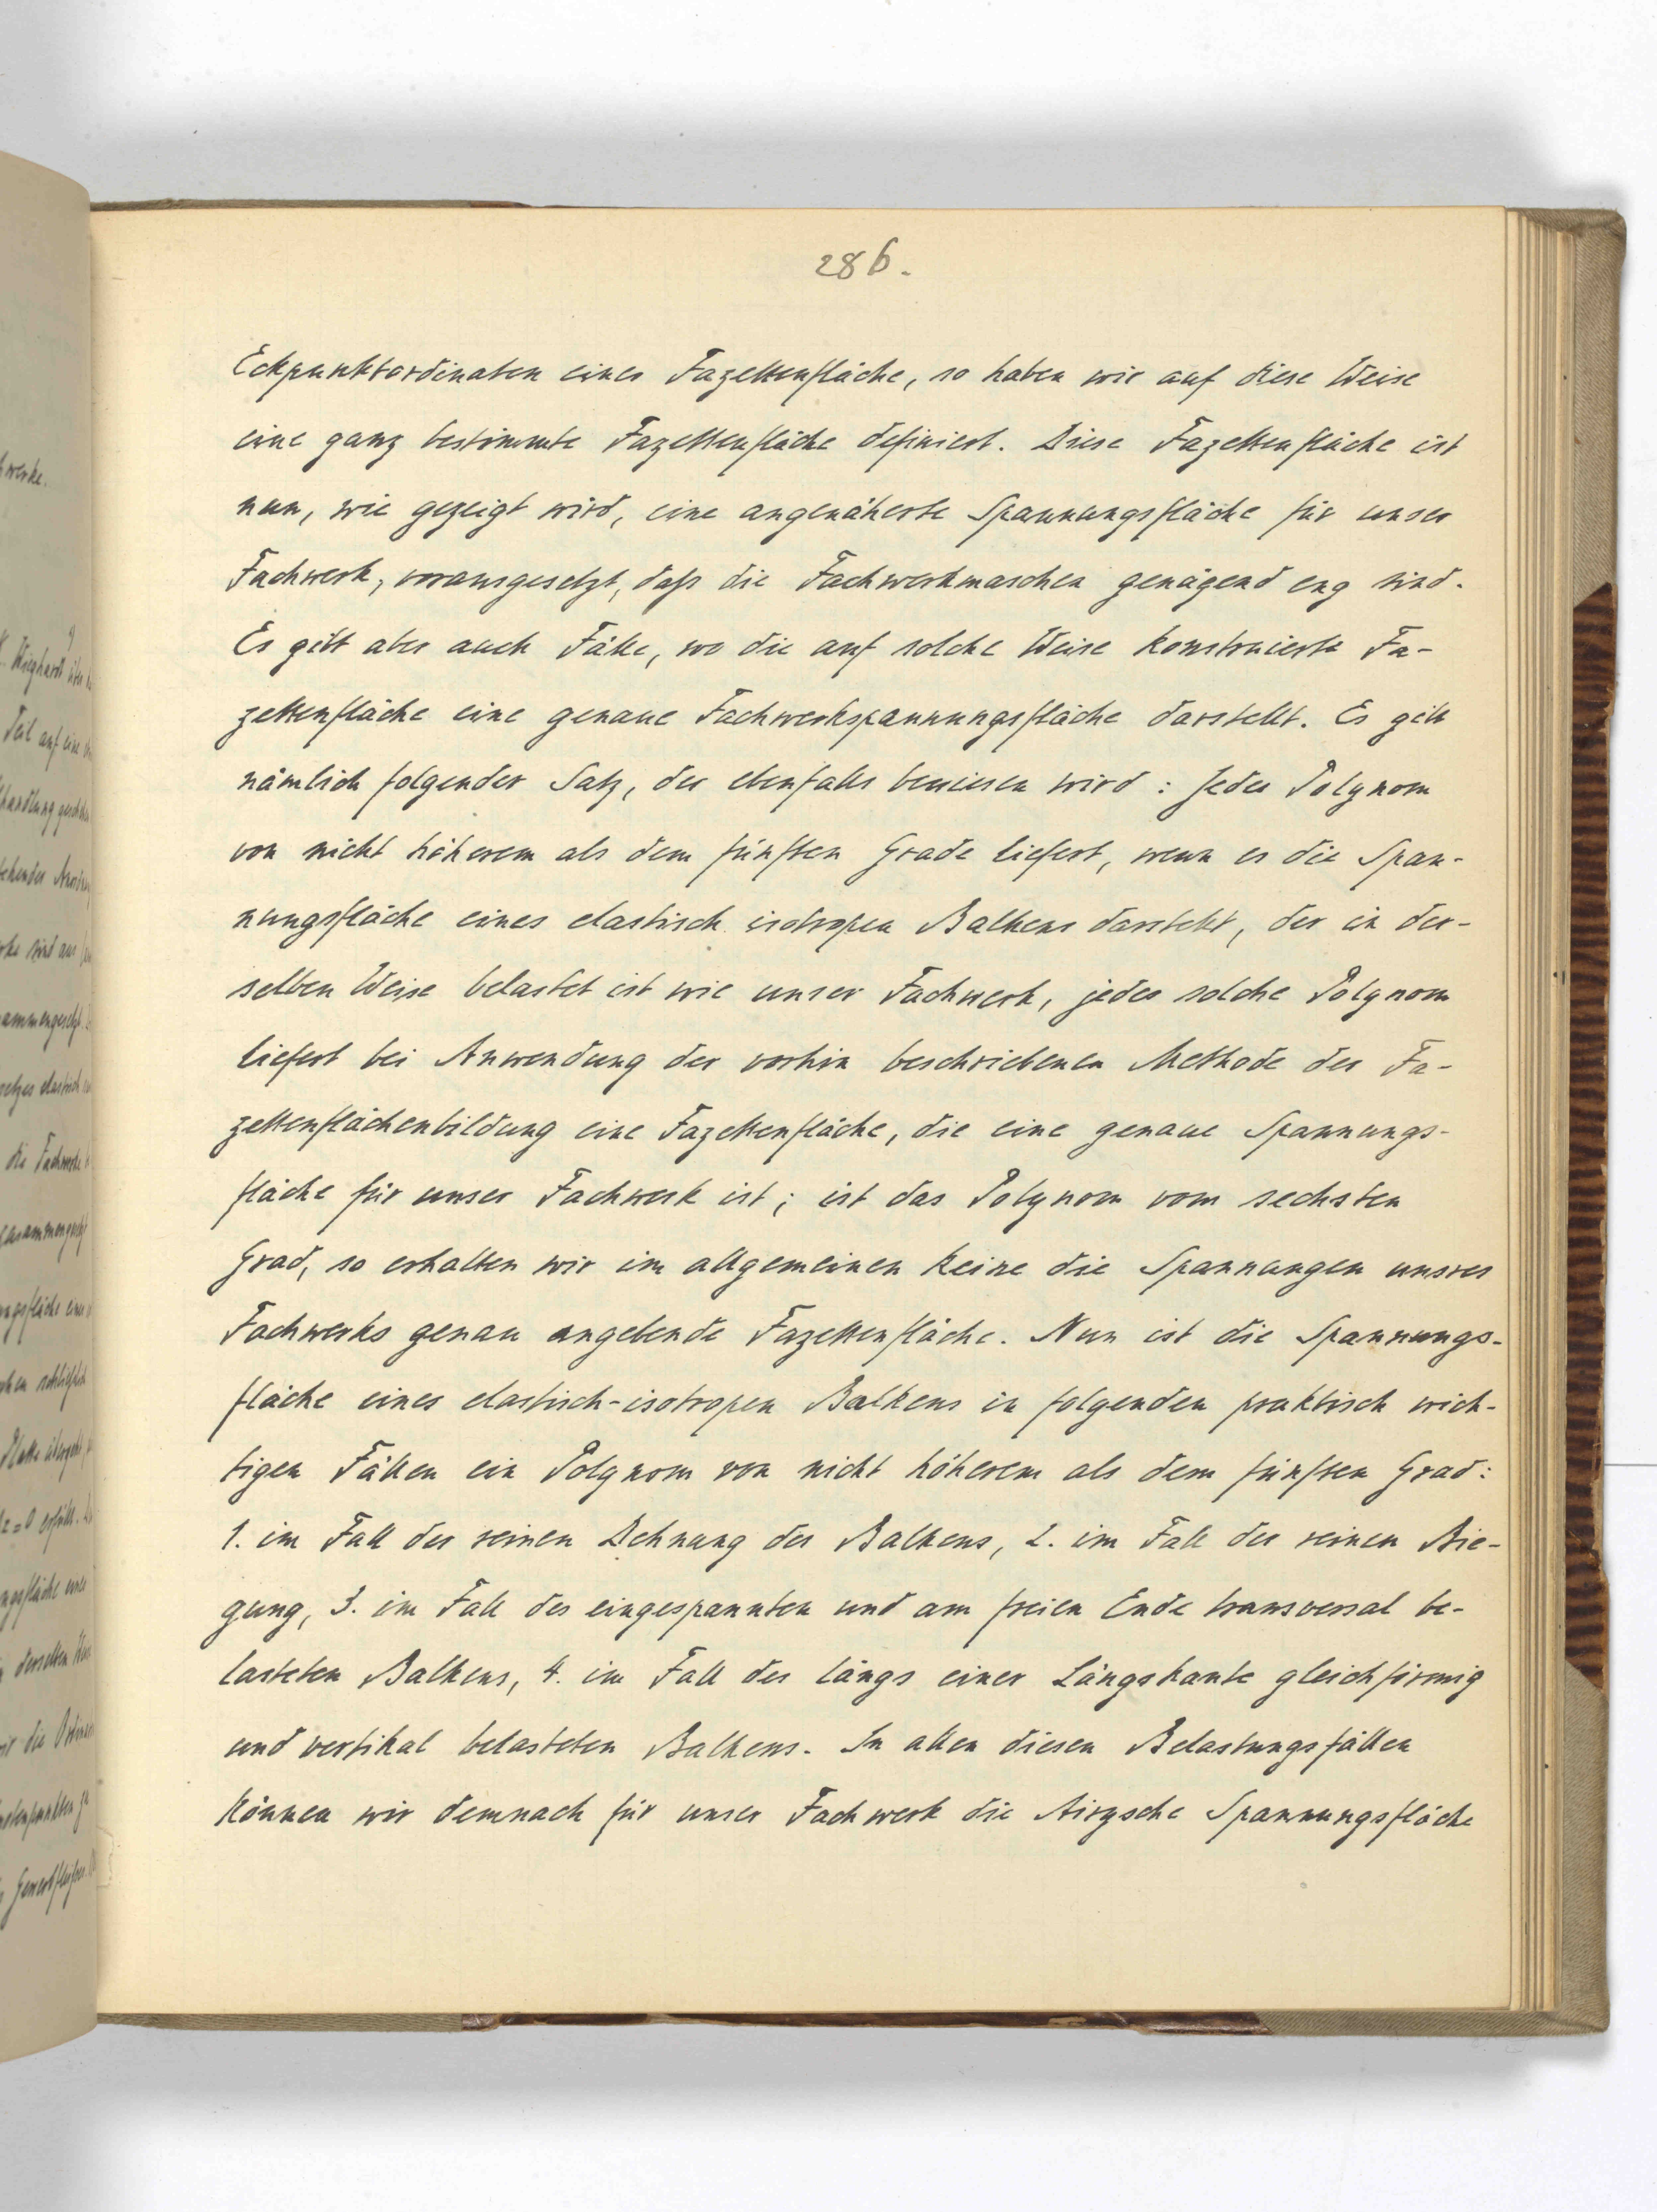 286.
Eckpunktordinaten einer Fazettenfläche, so haben wir auf diese Weise
eine ganz bestimmte Fazettenfläche definiert. Diese Fazettenfläche ist
nun, wie gezeigt wird, eine angenäherte Spannungsfläche für unser
Fachwerk, vorausgesetzt, daß die Fachwerkmaschen genügend eng sind.
Es gibt aber auch Fälle, wo die auf solche Weise konstruierte Fa-
zettenfläche eine genaue Fachwerkspannungsfläche darstellt. Es gilt
nämlich folgender Satz, der ebenfalls bewiesen wird: Jedes Polynom
von nicht höherem als dem fünften Grade liefert, wenn es die Span-
nungsfläche eines elastisch isotropen Balkens darstellt, der in der-
selben Weise belastet ist wie unser Fachwerk, jedes solche Polynom
liefert bei Anwendung der vorhin beschriebenen Methode der Fa-
zettenflächenbildung eine Fazettenfläche, die eine genaue Spannungs-
fläche für unser Fachwerk ist; ist das Polynom vom sechsten
Grad, so erhalten wir im allgemeinen keine die Spannungen unsres
Fachwerks genau angebende Fazettenfläche. Nun ist die Spannungs-
fläche eines elastisch-isotropen Balkens in folgenden praktisch wich-
tigen Fällen ein Polynom von nicht höherem als dem fünften Grad:
1. im Fall der reinen Dehnung des Balkens, 2. im Fall der reinen Bie-
gung, 3. im Fall des eingespannten und am freien Ende transversal be-
lasteten Balkens, 4. im Fall des längs einer Längskante gleichförmig
und vertikal belasteten Balkens. In allen diesen Belastungsfällen
können wir demnach für unser Fachwerk die Airysche Spannungsfläche